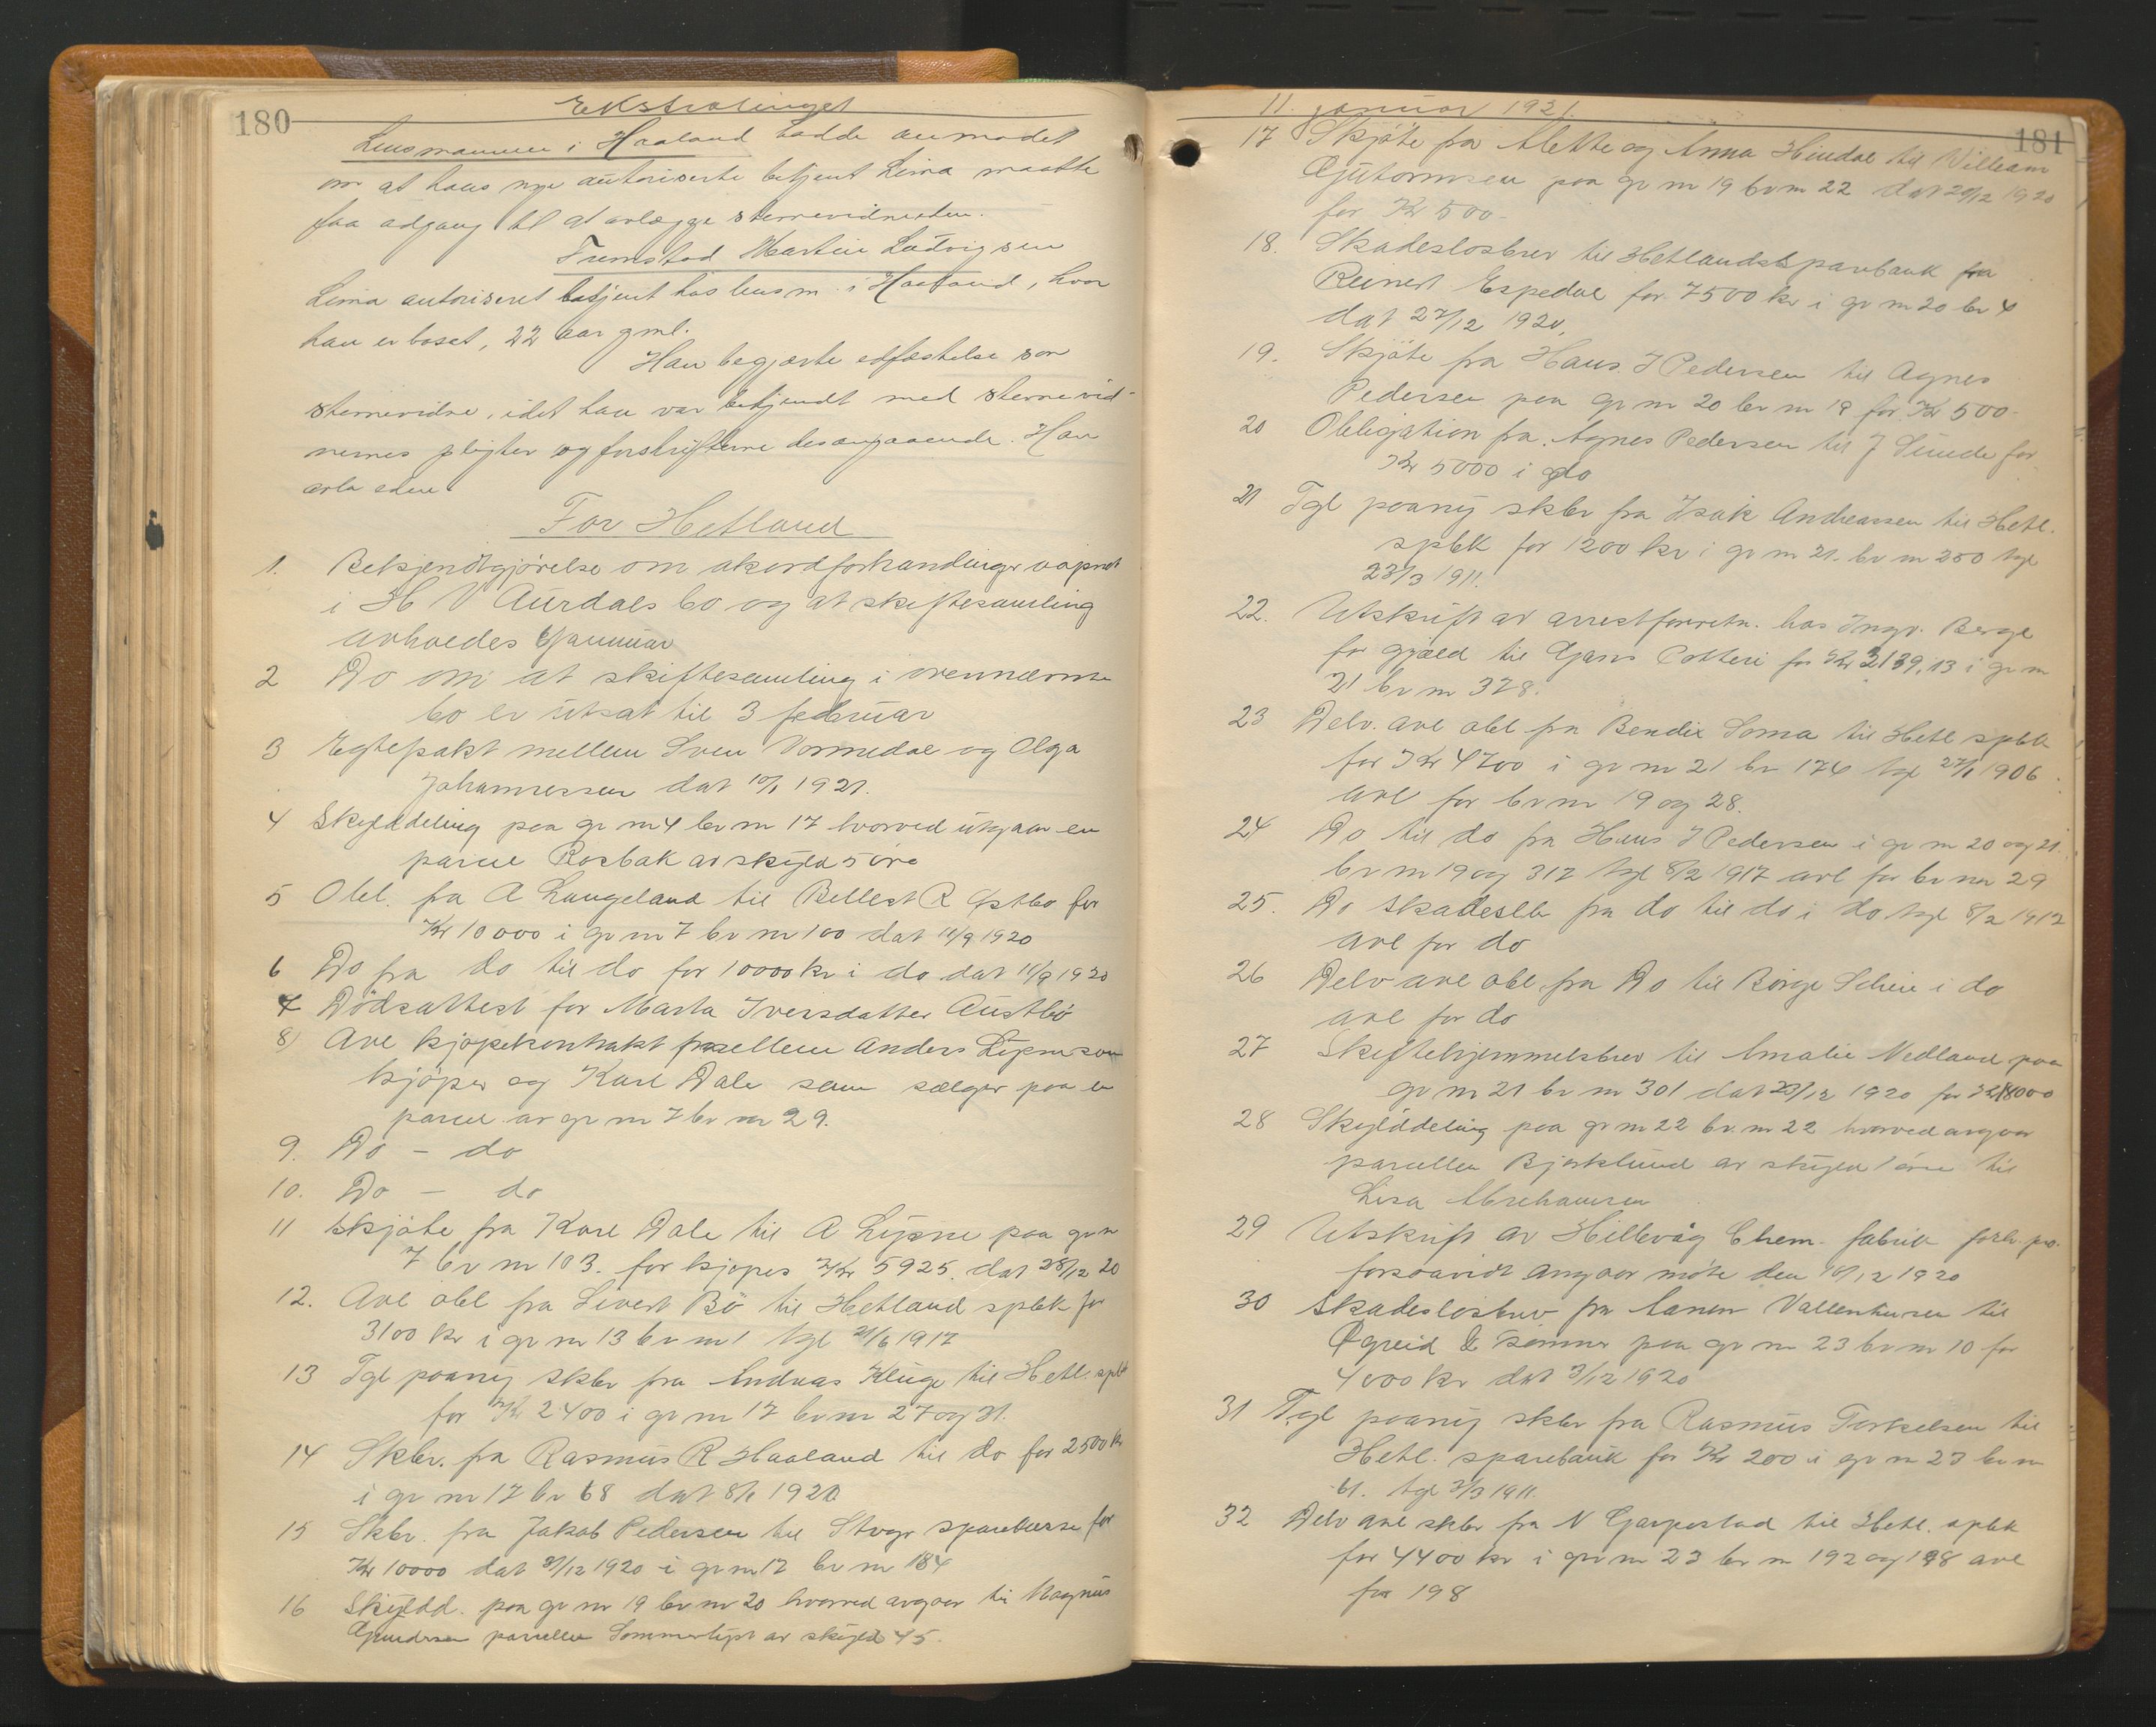 180
Ekstratinget
Lensmannen i Haaland hadde anmodet
om at hans nye autoriserte betjent Lima maatte
faa adgang til at avlægge stevnevidneeden.
Fremstod Martin Ludvigsen
Lima autoriseret betjent hos lensm. i Haaland, hvor
han er bosat, 22 aar gml.
Han begjærte edfæstelse som
stevnevidne, idet han var bekjendt med stevnevid-
nernes pligter og forskrifterne desangaaende. Han
avla eden.
For Hetland
1. Bekjendtgjörelse om akordforhandlinger aapnet
i H V Aurdals bo og at skiftesamling
avholdes januar
2 Do om at skiftesamling i ovennævnte
bo er utsat til 3 februar
3 Egtepakt mellem Sven Vormedal og Olga
Johannessen dat 10/1 1921.
4 Skylddeling paa gr nr 4 br nr 17 hvorved utgaar en
parcel Rosbak av skyld 5 øre
5 Obl. fra A Langeland til Bellest R Østbø for
Kr 10000 i gr nr 7 br nr 100 dat 11/9 1920
6 Do fra do til do for 10000 kr i do dat 11/9 1920
7 Dödsattest for Marta Iversdatter Austbö
8) Avl kjöpekontrakt mellem Anders Lysne som
kjöper og Karl Dale som sælger paa en
parcel av gr nr 7 br nr 29.
9. Do - do
10. Do - do
11 Skjöte fra Karl Dale til A Lysne paa gr nr
7 br nr 103. for kjöpes Kr 5925. dat 28/12 20
12. Avl obl fra Sivert Bö til Hetland spbk for
3100 kr i gr nr 13 br nr 1 tgl 21/6 1917
13 Tgl paany skbr fra Andreas Kluge til Hetl. spbk
for Kr 2400 i gr nr 17 br nr 27 og 31.
14 Skbr. fra Rasmus R Haaland til do for 2500 kr
i gr nr 17 br 68 dat 8/1 1921
15 Skbr. fra Jakob Pedersen til Stvgr sparebørse for
Kr 10000 dat 31/12 1920 i gr nr 17 br nr 184
16 Skyldd. paa gr nr 19 br nr 20 hvorved avgaar til Magnus
Gundersen parcellen Sommerlyst av skyld 45.
11. januar 1921.
181
17 Skjöte fra Mette og Anna Hindal til William
Gutormsen paa gr nr 19 br nr 22 dat 29/12 1920
for Kr 500-
18. Skadeslosbrev til Hetlands sparebank fra
Reinert Espedal for 7500 kr i gr nr 20 br 4
dat 27/12 1920.
19. Skjöte fra Hans J Pedersen til Agnes
Pedersen paa gr nr 20 br nr 19 for Kr 500-
20 Obligation fra Agnes Pedersen til J Sunde for
Kr 5000 i do
21 Tgl paany skbr fra Isak Andreassen til Hetl.
spbk for 1200 kr i gr nr 21. br nr 250 tgl
23/3 1911.
22. Utskrift av arrestforretn. hos Ingv. Berge
for gjæld til Gjans Potteri for Kr 2139,13 i gr nr
21 br nr 378.
23 Delv. avl obl fra Bendix Soma til Hetl spbk
for Kr 4700 i gr nr 21 br 174 tgl 27/1 1906
avl for br nr 19 og 28.
24 Do til do fra Hans J Pedersen i gr nr 20 og 21.
br nr 19 og 317 tgl 8/2 1917 avl for br nr 29
25. Do skadeslb fra do til do i do tgl 8/2 1912
avl for do
26 Delv avl obl fra Do til Börge Scheie i do
avl for do
27 Skiftehjemmelsbrev til Amalie Nedland paa
gr nr 21 br nr 301 dat 23/12 1920 for Kr 18000
28 Skylddeling paa gr nr 22 br. nr 22 hvorved avgaar
parcellen Bjørklund av skyld 1 öre til
Lisa Abrehamsen
29 Utskrift av Hillevåg Chem. fabrik forh. pr.
forsaavidt angaar möte den 10/12 1920
30 Skadeslosbrev fra Vallenhusen til
Øgreid & sönner paa gr nr 23 br nr 10 for
4000 kr dat 3/12 1920
31 Tgl paany skbr fra Rasmus Torkelsen til
Hetl. sparebank for Kr 200 i gr nr 23 br nr
61. tgl 3/3 1911.
32 Delv avl skbr fra N Garpestad til Hetl. spbk
for 4400 kr i gr nr 23 br nr 192 og 198 avl
for 198